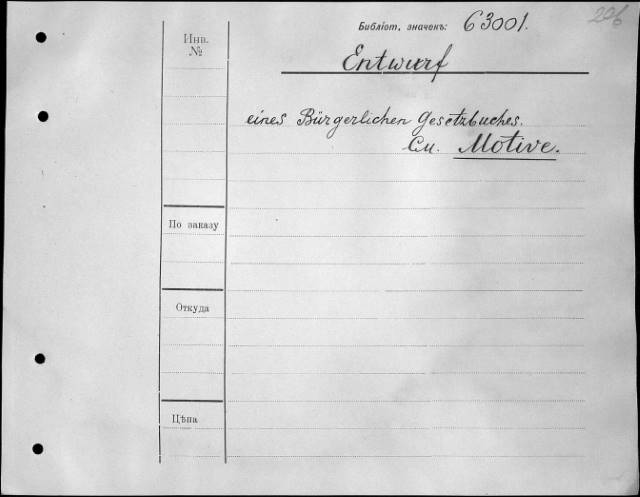 206
Библіот. значекъ: 63001.
Инв.
№
Entwurf
eines Bürgerlichen Gesetzbuches.
См. Motive.
По заказу
Откуда
Цѣна